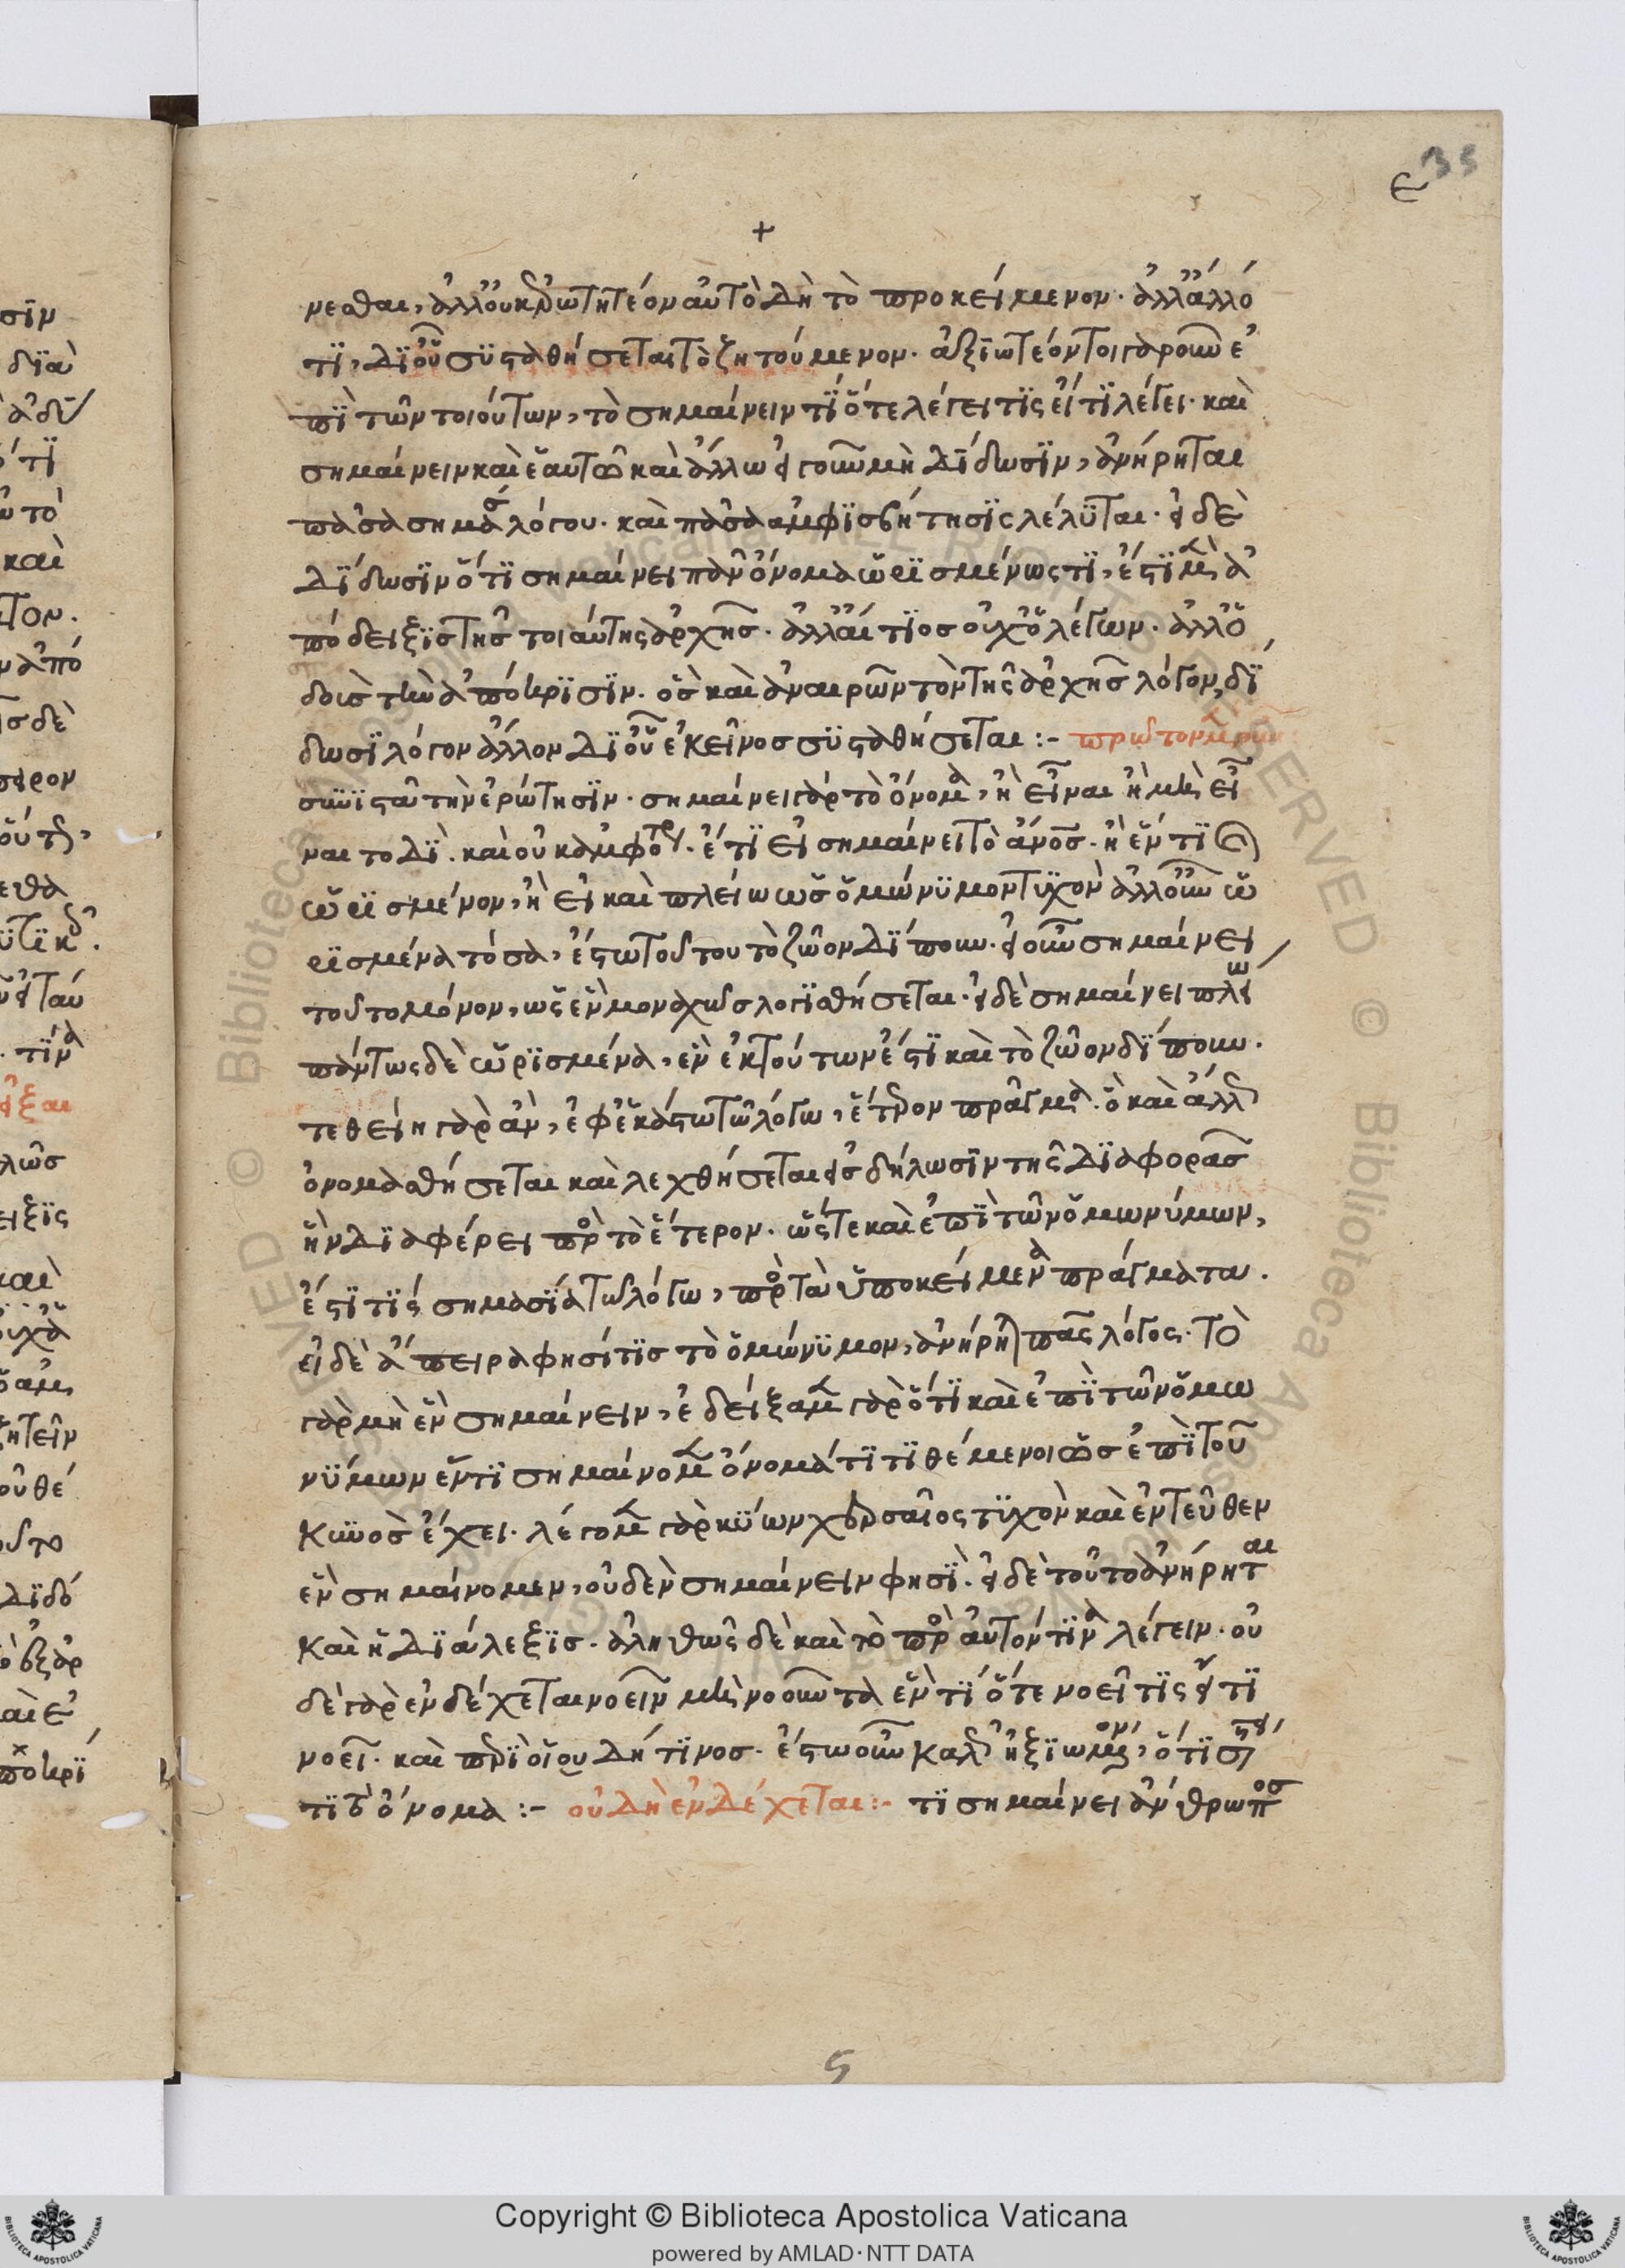 ε 35
+
νεσθαι, ἀλλ' οὐκ ἐρωτητέον αὐτὸ δὴ τὸ προκείμενον. ἀλλ' ἄλλό
τϊ, δϊ οὗ συσταθήσεται τὸ ζητούμενον. ἀξϊωτέον τοι γαροῦν ἐ
πὶ τῶν τοιούτων, τὸ σημαίνειν τϊ ὅτε λέγει τϊς εἴ τϊ λέγει. καὶ
σημαίνειν καὶ ἑαυτῶ καὶ ἄλλω εἰ γοῦν μὴ δίδωσϊν, ἀνήρηται
πᾶσα σημασ λόγου. καὶ πᾶσα ἀμφϊσβήτησϊς λέλϋται. εἰ δὲ
δίδωσϊν ὅτϊ σημαίνει πᾶν ὄνομα ὡρϊσμένως τϊ, ἔστϊ μὲν ἀ
πόδειξϊσ τῆσ τοιαύτης ἀρχῆσ. ἀλλ' αἴτϊοσ οὐχ' ὁ λέγων. ἀλλ' ὁ
δοὺσ τὴν ἀπόκρϊσϊν. ὃσ καὶ ἀναιρῶν τὸν τῆς ἀρχῆσ λόγον, δί
δωσϊ λόγον ἄλλον δϊ οὗ ἐκεῖνοσ συσταθήσεται :- πρῶτον μὲν οὖν
συνϊστᾶ τὴν ἐρώτησϊν. σημαίνει γὰρ τὸ ὄνομα, ἢ εἶναι ἢ μὴ εἶ
ναι το δϊ. καὶ οὐκ ἀμφοτερ. ἔτϊ εἰ σημαίνει τὸ ἄνοσ. ἢ ἕν τϊ
ὡρϊσμένον, ἢ εἰ καὶ πλείω ὡσ ὁμώνϋμον τϋχὸν ἀλλ' οὖν ὡ
ρϊσμένα τόσα, ἔστω τοῦτου τὸ ζῶον δίπουν. εἰ οὖν σημαίνει
τοῦτο μόνον, ὡς ἓν μοναχῶσ λογϊσθήσεται. εἰ δὲ σημαίνει πλείω
πάντως δὲ ὡρϊσμένα, ἓν ἐκ τούτων ἐστϊ καὶ τὸ ζῶον δίπουν.
τεθείη γὰρ ἂν, ἐφ' ἑκάστω τῶ λόγω, ἕτερον πρᾶγμα. ὃ καὶ ἄλλ
ὀνομασθήσεται καὶ λεχθήσεται εἰσ δήλωσϊν τῆς δϊαφορᾶσ
ἣν δϊαφέρει πρὸς τὸ ἕτερον. ὥστε καὶ ἐπὶ τῶν ὁμωνύμων,
ἔστϊ τϊς σημασία τῶ λόγω, πρὸς τὰ ὑποκείμενα πράγματα.
εἰ δὲ ἄπειρα φησί τϊσ τὸ ὁμώνϋμον, ἀνήρη πᾶς λόγος. τὸ
γὰρ μὴ ἓν σημαίνειν, ἐδείξαμεν γὰρ ὅτϊ καὶ ἐπὶ τῶν ὁμω
νϋμων ἕν τϊ σημαίνομεν ὄνομά τϊ τϊθέμενοι ὡσ ἐπὶ τοῦ
κυνὸσ ἔχει. λέγομεν γὰρ κϋων χερσαῖος τϋχὸν καὶ ἐντεῦθεν
ἓν σημαίνομεν, οὐδὲν σημαίνειν φησϊ. εἰ δὲ τοῦτο ἀνήρηται
καὶ ἡ δϊάλεξϊσ. ἀληθῶς δὲ καὶ τὸ πρὸς αὐτόν τϊνα λέγειν. οὐ
δὲ γὰρ ἐνδέχεται νοεῖν μὴ νοοῦντα ἕν τϊ ὅτε νοεῖ τϊς εἴ τϊ
νοεῖ. καὶ περὶ οἵου δή τϊνοσ. ἔστω οὖν καθ' ἠξϊωμεν, ὅτϊ ση
τϊ τὸ ὄνομα :- οὐ δὴ ἐνδέχεται :- τϊ σημαίνει ἄνθρωποσ
5
Copyright © Biblioteca Apostolica Vaticana
powered by AMLAD·NTT DATA